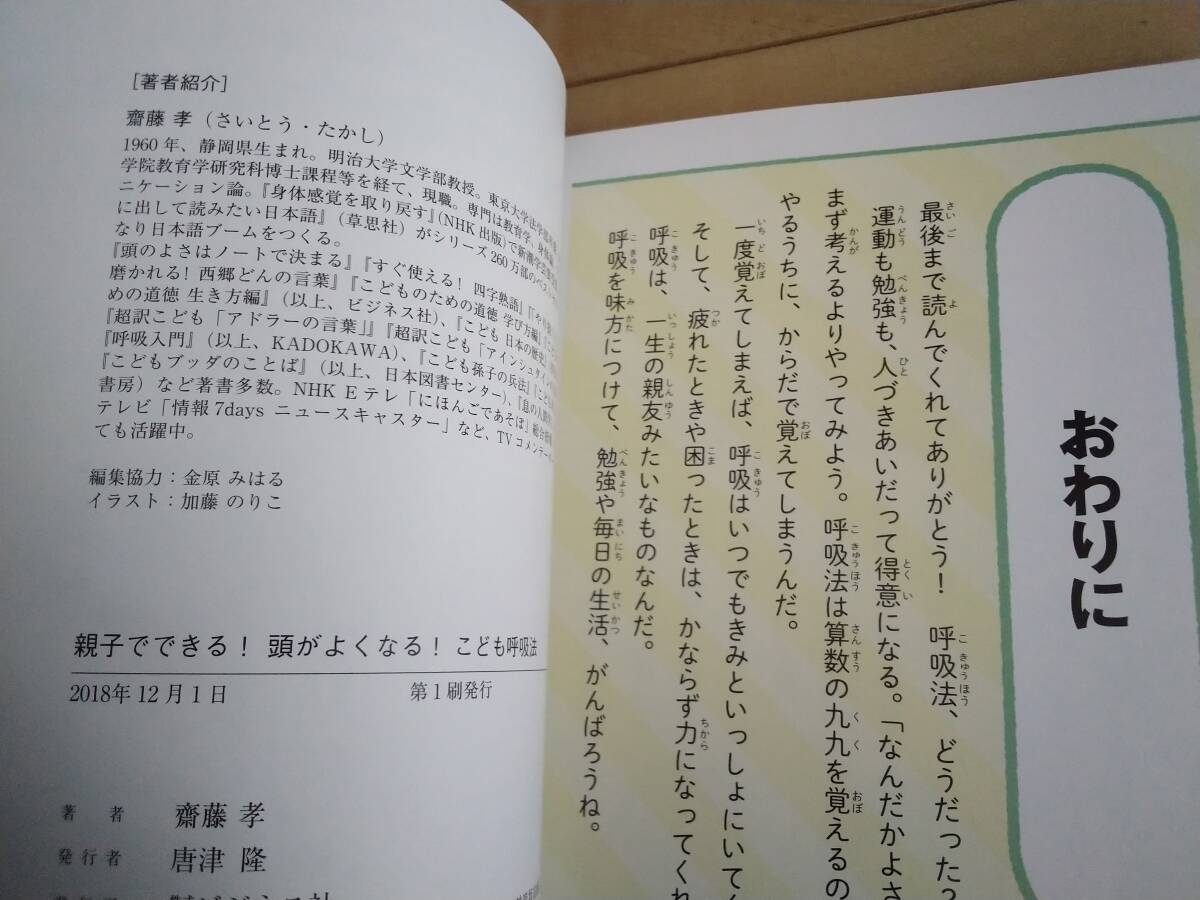 [著者紹介]
齋藤 孝(さいとう・たかし)
1960年、静岡県生まれ。明治大学文学部教授。東京大学法学部卒
学院教育学研究科博士課程等を経て、現職。専門は教育学、身体論
ニケーション論。『身体感覚を取り戻す』(NHK出版)で新潮学芸賞
に出して読みたい日本語』(草思社)がシリーズ260万部のベスト
なり日本語ブームをつくる。
『頭のよさはノートで決まる』『すぐ使える! 四字熟語』『やり
磨かれる! 西郷どんの言葉』『こどものための道徳 学び方編』『こ
めの道徳 生き方編』(以上、ビジネス社)、『こども 日本の歴史』
『超訳こども「アドラーの言葉」』『超訳こども「アインシュタイン
『呼吸入門』(以上、KADOKAWA)、『こども孫子の兵法』『こども
『こどもブッダのことば』(以上、日本図書センター)、『息の人間学』
書房)など著書多数。NHK Eテレ「にほんごであそぼ」総合指導
テレビ「情報7days ニュースキャスター」など、TVコメンテー
ても活躍中。
編集協力:金原 みはる
イラスト:加藤 のりこ
親子でできる! 頭がよくなる! こども呼吸法
2018年12月1日 第1刷発行
著 者 齋藤 孝
発行者 唐津 隆
おわりに
最後まで読んでくれてありがとう! 呼吸法、どうだった?
運動も勉強も、人づきあいだって得意になる。「なんだかよさ
まず考えるよりやってみよう。呼吸法は算数の九九を覚えるの
やるうちに、からだで覚えてしまうんだ。
一度覚えてしまえば、呼吸はいつでもきみといっしょにいてく
そして、疲れたときや困ったときは、かならず力になってくれ
呼吸は、一生の親友みたいなものなんだ。
呼吸を味方につけて、勉強や毎日の生活、がんばろうね。